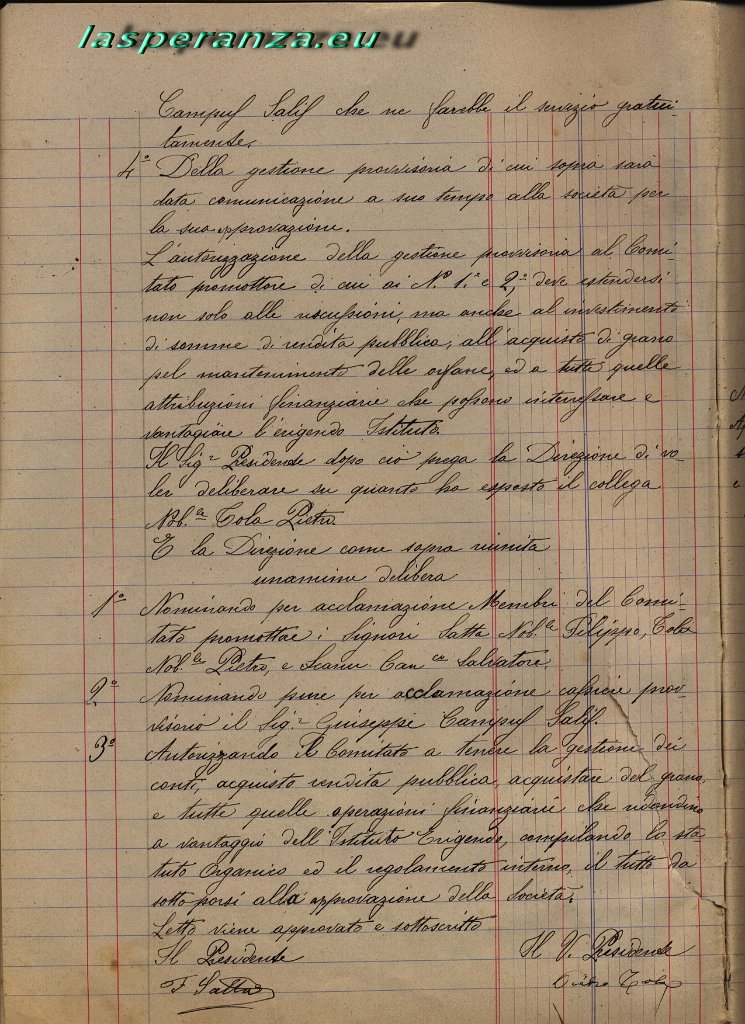 lasperanza.eu
Campus Salis che ne farebbe il servizio gratui-
tamente.
4° Della gestione provvisoria di cui sopra sarà
data comunicazione a suo tempo alla società per
la sua approvazione.
L'autorizzazione della gestione provvisoria al Comi-
tato promottore di cui ai N.° 1.° e 2.° deve estendersi
non solo alle riscussioni, ma anche al investimento
di somme di rendita pubblica, all'acquisto di grano
pel mantenimento delle orfane, ed a tutte quelle
attribuzioni finanziarie che possono interressare e
vantagiare l'erigendo Istituto.
Il Sig.r Presidente dopo ciò prega la Direzione di vo-
ler deliberare su quanto ha esposto il collega
Nob.le Tola Pietro.
E la Direzione come sopra riunita
unamime delibera
1° Nominando per acclamazione Membri del Comi-
tato promottore i Signori Satta Nob.le Filippo, Tola
Nob.le Pietro, e Scanu Can.co Salvatore.
2° Nominando pure per acclamazione cassiere prov-
visorio il Sig.r Giuseppe Campus Salis.
3° Autorizzando il Comitato a tenere la gestione dei
conti, acquisto rendita pubblica, acquistare del grano,
e tutte quelle operazioni finanziarie che ridondino
a vantaggio dell'Istituto Erigendo, compilando lo sta
tuto Organico ed il regolamento interno, il tutto da
sottoporsi alla approvazione della Società.
Letto viene approvato e sottoscritto
Il Presidente Il V. Presidente
F Satta Tola